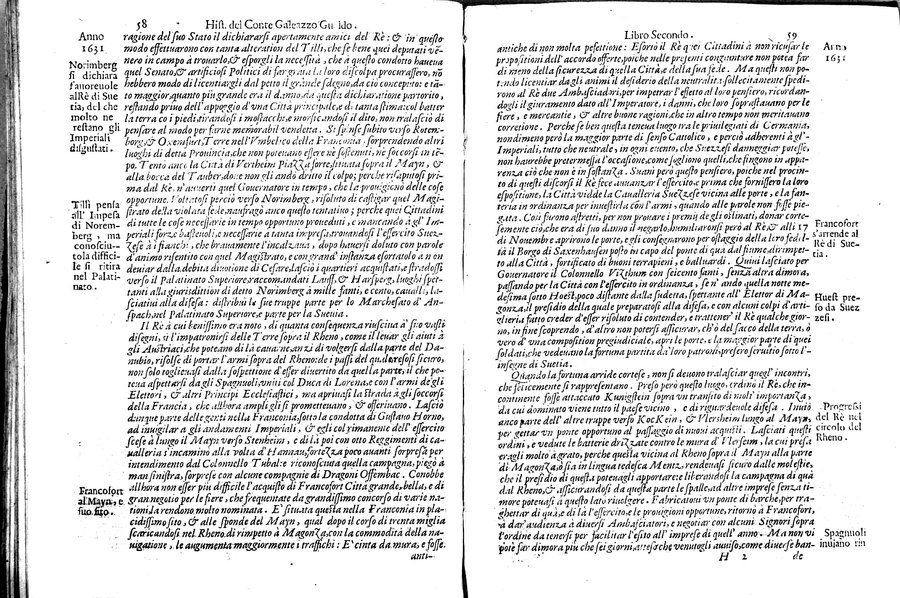 58 Hist. del Conte Galeazzo Gualdo.
Anno
1631
Norimberg
si dichiara
fauoreuole
al Rè di Sue
tia; del che
molto ne
restano gli
Imperiali
disgustati.
Tilli pensa
all' Impresa
di Norem-
berg, ma
conosciu-
tola difici-
le si ritira
nel Palati-
nato.
Francofort
al Mayn, e
suo sito.
ragione del suo Stato il dichiararsi apertamente amici del Rè: & in questo
modo effettuarono con tanta alteration del Tilli, che se bene quei deputati vẽ-
nero in campo à trouarlo, & esporgli la necessità, che à questo condotto haueua
quel Senato, & artificiosi Politici di far grata la loro discolpa procurassero, nõ
hebbero modo di licentiargli dal petto il grande sdegno, da ciò concepito: e tã-
to maggior, quanto più grande era il danno, da questa dichiaratione partorito,
restando priuo dell'appoggio d'vna Città principale, e di tanta stima: col batter
la terra co i piedi, tirandosi i mostacchi, e morsicandosi il dito, non tralasciò di
pensare al modo per farne memorabil vendetta. Si spinse subito verso Rotem-
berg, & Oxenfurt, Terre nell'Vmbelico della Franconia, sorprendendo altri
luoghi di detta Prouincia, che non poteuano essere nè sostenuti, nè soccorsi in tẽ-
po. Tentò anco la Città di Vertheim Piazza forte, situata sopra il Mayn, &
alla bocca del Tauber, doue non gli andò dritto il colpo; perche risaputosi prima
dal Rè, n'auuertì quel Gouernatore in tempo, che la prouigione delle cose
opportune. Voltatosi perciò verso Norimberg, risoluto di castigar quel Magi-
strato della violata fede, naufragò anco questo tentatiuo; perche quei Cittadini
di tutte le cose necessarie in tempo opportuno proueduti, e mancando à gl' Im-
periali forze bastenoli, e necessarie à tanta impresa, trouandosi l'essercito Suez-
Zese à i fianchi, che brauamente l'incalzaua, dopo hauersi doluto con parole
d'animo risentito con quel Magistrato, e con grand' instanza esortatolo à non
deuiar dalla debita diuotione di Cesare, lasciò i quartieri acquistati, e stradossi
verso il Palatinato Superiore, raccomandati Lauff, & Harsperg, luoghi spet-
tanti alla giurisdition di detto Norimberg à mille fanti, e cento, caualli, la-
sciatiui alla difesa: distribuì le sue truppe parte per lo Marchesato d'An-
spach, nel Palatinato Superiore, e parte per la Sueuia.
Il Rè à cui benissimo era noto, di quanta consequenza riuscisse à suoi vasti
disegni, si l'impatronirsi delle Terre sopra il Rheno, come il leuar gli aiuti à
gli Austriaci, che poteano di là cauarne, anzi di volgersi dalla parte del Da-
nubio, risolse di portar l'armi sopra del Rheno: de i passi del quale resosi sicuro,
non solo toglieuasi dalla sospettione d'esser diuertito da quella parte, il che po-
teua aspettarsi da gli Spagnuoli, vniti col Duca di Lorena, e con l'armi de gli
Elettori, & altri Principi Ecclesiastici, ma apriuasi la strada à gli soccorsi
della Francia, che allhora ampli gli si prometteuano, & offeriuano. Lasciò
dunque parte delle genti nella Franconia, sotto la condotta di Gustauo Horno,
ad inuigilar à gli andamenti Imperiali, & egli col rimanente dell'essercito
scese à lungo il Mayn verso Stenheim, e di là poi con otto Reggimenti di ca-
ualleria s'incaminò alla volta d'Hannau, fortezza poco auanti sorpresa per
intendimento dal Colonnello Tubal: e riconosciuta quella campagna, piegò à
man sinistra, sorprese con alcune compagnie di Dragoni Offembac. Conobbe
allhora non esser più difficile l'acquisto di Francofort Città grande, bella, e di
gran negotio per le fiere, che frequentate da grandissimo concorso di varie na-
tioni, la rendono molto nominata. E' situata questa nella Franconia in pla-
cidissimo sito, & alle sponde del Mayn, qual dopo il corso di trenta miglia
scaricandosi nel Rheno, di rimpetto à Magonza, con la commodità della na-
uigatione, le augumenta maggiormente i traffichi: E' cinta da mura, e fosse
anti-
Libro Secondo. 59
antiche di non molta perfettione: Esortò il Rè quei Cittadini à non ricusar le
propositioni dell'accordo offerte, poiche nelle presenti congiunture non potea far
di meno della sicurezza di quella Città, e della sua fede. Ma questi non po-
tendo licentiar da gli animi il desiderio della neutralità, sollecitamente spedi-
rono al Rè due Ambasciadori, per impetrar l'effetto al loro pensiero, ricordan-
dogli il giuramento dato all'Imperatore, i danni, che loro soprastauano per le
fiere, e mercantie, & altre buone ragioni, che in altro tempo non meritauano
correttione. Perche se ben questa teneua luogo trà le priuilegiate di Germania,
nondimeno però la maggior parte di senso Catolico, e perciò adherenti à gl'-
Imperiali, tutto che neutrale, in ogni euento, che Suezzesi danneggiar potesse,
non haurebbe pretermessa l'occasione, come sogliono quelli, che fingono in appa-
renza ciò che non è in sostanza. Suanì però questo pensiero, poiche nel procin-
to di questi discorsi il Rè fece auuanzar l'essercito, e prima che fornissero la loro
espositione, la Città vidde la Caualleria Suezzese vicina alle porte, e la fan-
teria in ordinanza per inuestirla con l'armi, quando alle parole non fosse pie-
gata. Così furono astretti, per non prouare i premij de gli ostinati, donar corte-
semente ciò, che era di suo danno il negarlo, humiliaronsi però al Rè, & alli 17
di Nouembre aprirono le porte, e gli consegnarono per ostaggio della loro fedel-
tà il Borgo di Saxenhausen posto in capo del ponte di quà dal fiume, dirimpet-
to alla Città, fortificato di buoni terrapieni, e balluardi. Quiui lasciato per
Gouernatore il Colonnello Vitzthum con seicento fanti, senza altra dimora,
passando per la Città con l'essercito in ordinanza, se n' andò quella notte me-
desima sotto Hoest, poco distante dalla sudetta, spettante all' Elettor di Ma-
gonza, il presidio della quale preparatosi alla difesa, e con alcuni colpi d'arti-
glieria fatto creder d'esser risoluto di contender, e trattener il Rè qualche gior-
no, in fine scoprendo, d'altro non potersi assicurar, ch'ò del sacco della terra, ò
vero d'vna composition pregiudiciale, aprì le porte, e la maggior parte di quei
soldati, che vedeuano la fortuna partita da loro patroni, preser seruitio sotto l'-
insegne di Suetia.
Quando la fortuna arride cortese, non si deuono tralasciar quegl' incontri,
che felicemente si rappresentano. Preso però questo luogo, ordinò il Rè, che in-
continente fosse attaccato Kunigstein sopra vn transito di molt' importanza,
da cui dominato viene tutto il paese vicino, e di riguardeuole difesa. Inuiò
anco parte dell'altre truppe verso Kockein, & Vlersheim lungo al Mayn,
per gettar vn ponte opportuno al passaggio di nuoui acquisti. Lasciati questi
ordini, e vedute le batterie drizzate contro le mura d'Vlerseim, la cui presa
eragli molto à grato, perche questa vicina al Rheno sopra il Mayn alla parte
di Magonza, ò sia in lingua tedesca Mentz, rendeuasi sicuro dalle molestie,
che il presidio di questa potea gli apportare: e liberando il la campagna di quà
dal Rheno, & assicurandosi da questa parte le spalle, ad altre imprese senza ti-
more poteuasi à questo lato riuolgere. Fabricatoui vn ponte di barche, per tra-
ghettar di quà, e di là l'essercito, e le prouigioni opportune, ritornò à Francofort,
à dar'audienza à diuersi Ambasciatori, e negotiar con alcuni Signori sopra
l'ordine da tenersi per facilitar l'esito all' imprese di quell' anno. Ma non vi
potè far dimora più che sei giorni, attesoche venutogli auuiso, come diuerse ban-
H 2 de
Anno
1631
Francofort
s'arrende al
Rè di Sue-
tia.
Huest pre-
so da Suez
zesi.
Progressi
del Rè nel
circolo del
Rheno.
Spagnuoli
inuiano rin